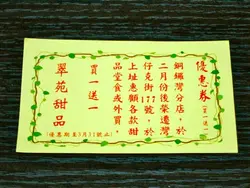 優惠券(買一送一)
銅鑼灣分店，於
二月份後榮遷灣
仔克街17號，於
上址惠顧各款甜
品堂食或外買，
買一送一
翠苑甜品
(優惠期至3月11號止)